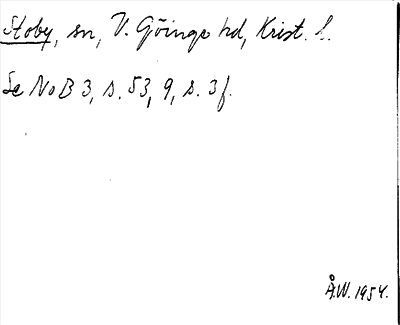 Stoby, sn, V. Göinge hd, Krist. l.
Se NoB 3, s. 53, 9, s. 3 f.
Å.W. 1954.